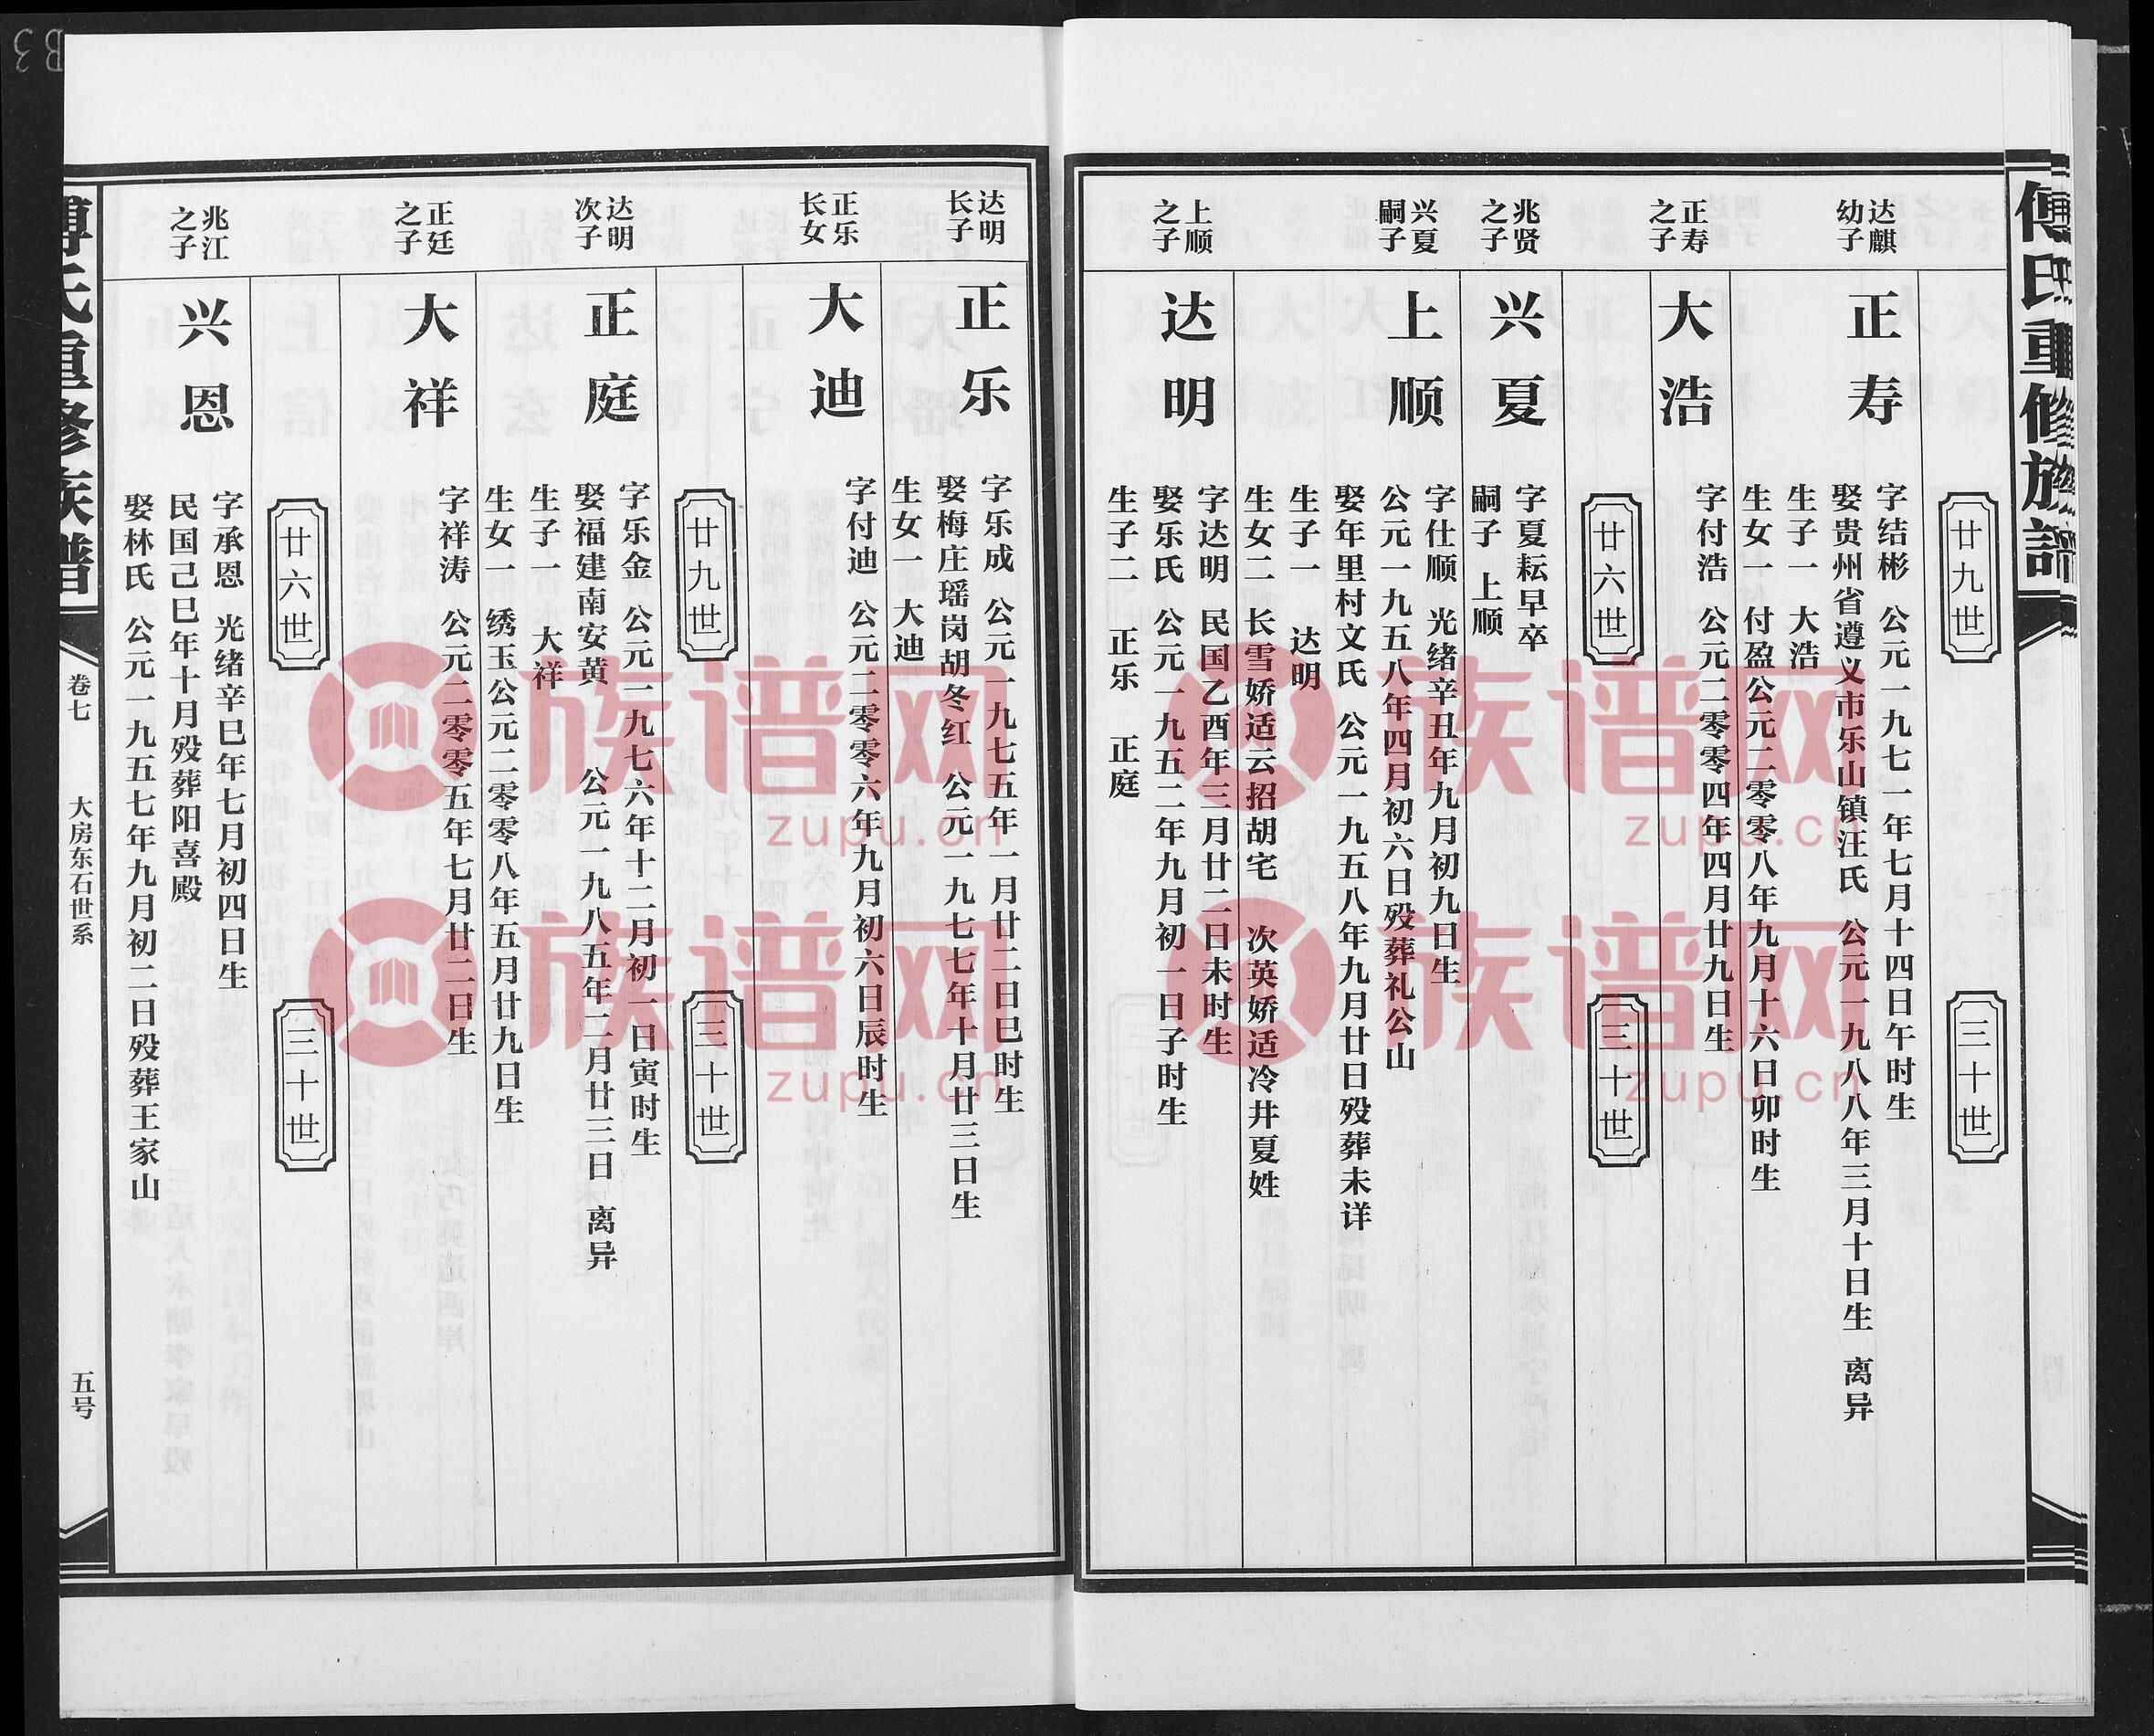 傅氏重修族谱
廿九世
三十世
达麒
幼子
正寿
字结彬 公元一九七一年七月十四日午时生
娶贵州省遵义市乐山镇汪氏 公元一九八八年三月十日生 离异
生子一 大浩
生女一 付盈公元二零零八年九月十六日卯时生
正寿
之子
大浩
字付浩 公元二零零四年四月廿九日生
廿六世
三十世
兆贤
之子
兴夏
字夏耘早卒
嗣子 上顺
兴夏
嗣子
上顺
字仕顺 光绪辛丑年九月初九日生
公元一九五八年四月初六日殁葬礼公山
娶年里村文氏 公元一九五八年九月廿日殁葬未详
生子一 达明
生女二 长雪娇适云招胡宅 次英娇适冷井夏姓
上顺
之子
达明
字达明 民国乙酉年三月廿二日未时生
娶乐氏 公元一九五二年九月初一日子时生
生子二 正乐 正庭
达明
长子
正乐
字乐成 公元一九七五年一月廿二日巳时生
娶梅庄瑶岗胡冬红 公元一九七七年十月廿三日生
生女一 大迪
正乐
长女
大迪
字付迪 公元二零零六年九月初六日辰时生
廿九世
三十世
达明
次子
正庭
字乐金 公元一九七六年十二月初一日寅时生
娶福建南安黄 公元一九八五年二月廿三日 离异
生子一 大祥
生女一 绣玉公元二零零八年五月廿九日生
正廷
之子
大祥
字祥涛 公元二零零五年七月廿二日生
廿六世
三十世
兆江
之子
兴恩
字承恩 光绪辛巳年七月初四日生
民国己巳年十月殁葬阳喜殿
娶林氏 公元一九五七年九月初二日殁葬王家山
傅氏重修族谱
卷七
大房东石世系
五号
族谱网
zupu.cn
族谱网
zupu.cn
族谱网
zupu.cn
族谱网
zupu.cn
B3